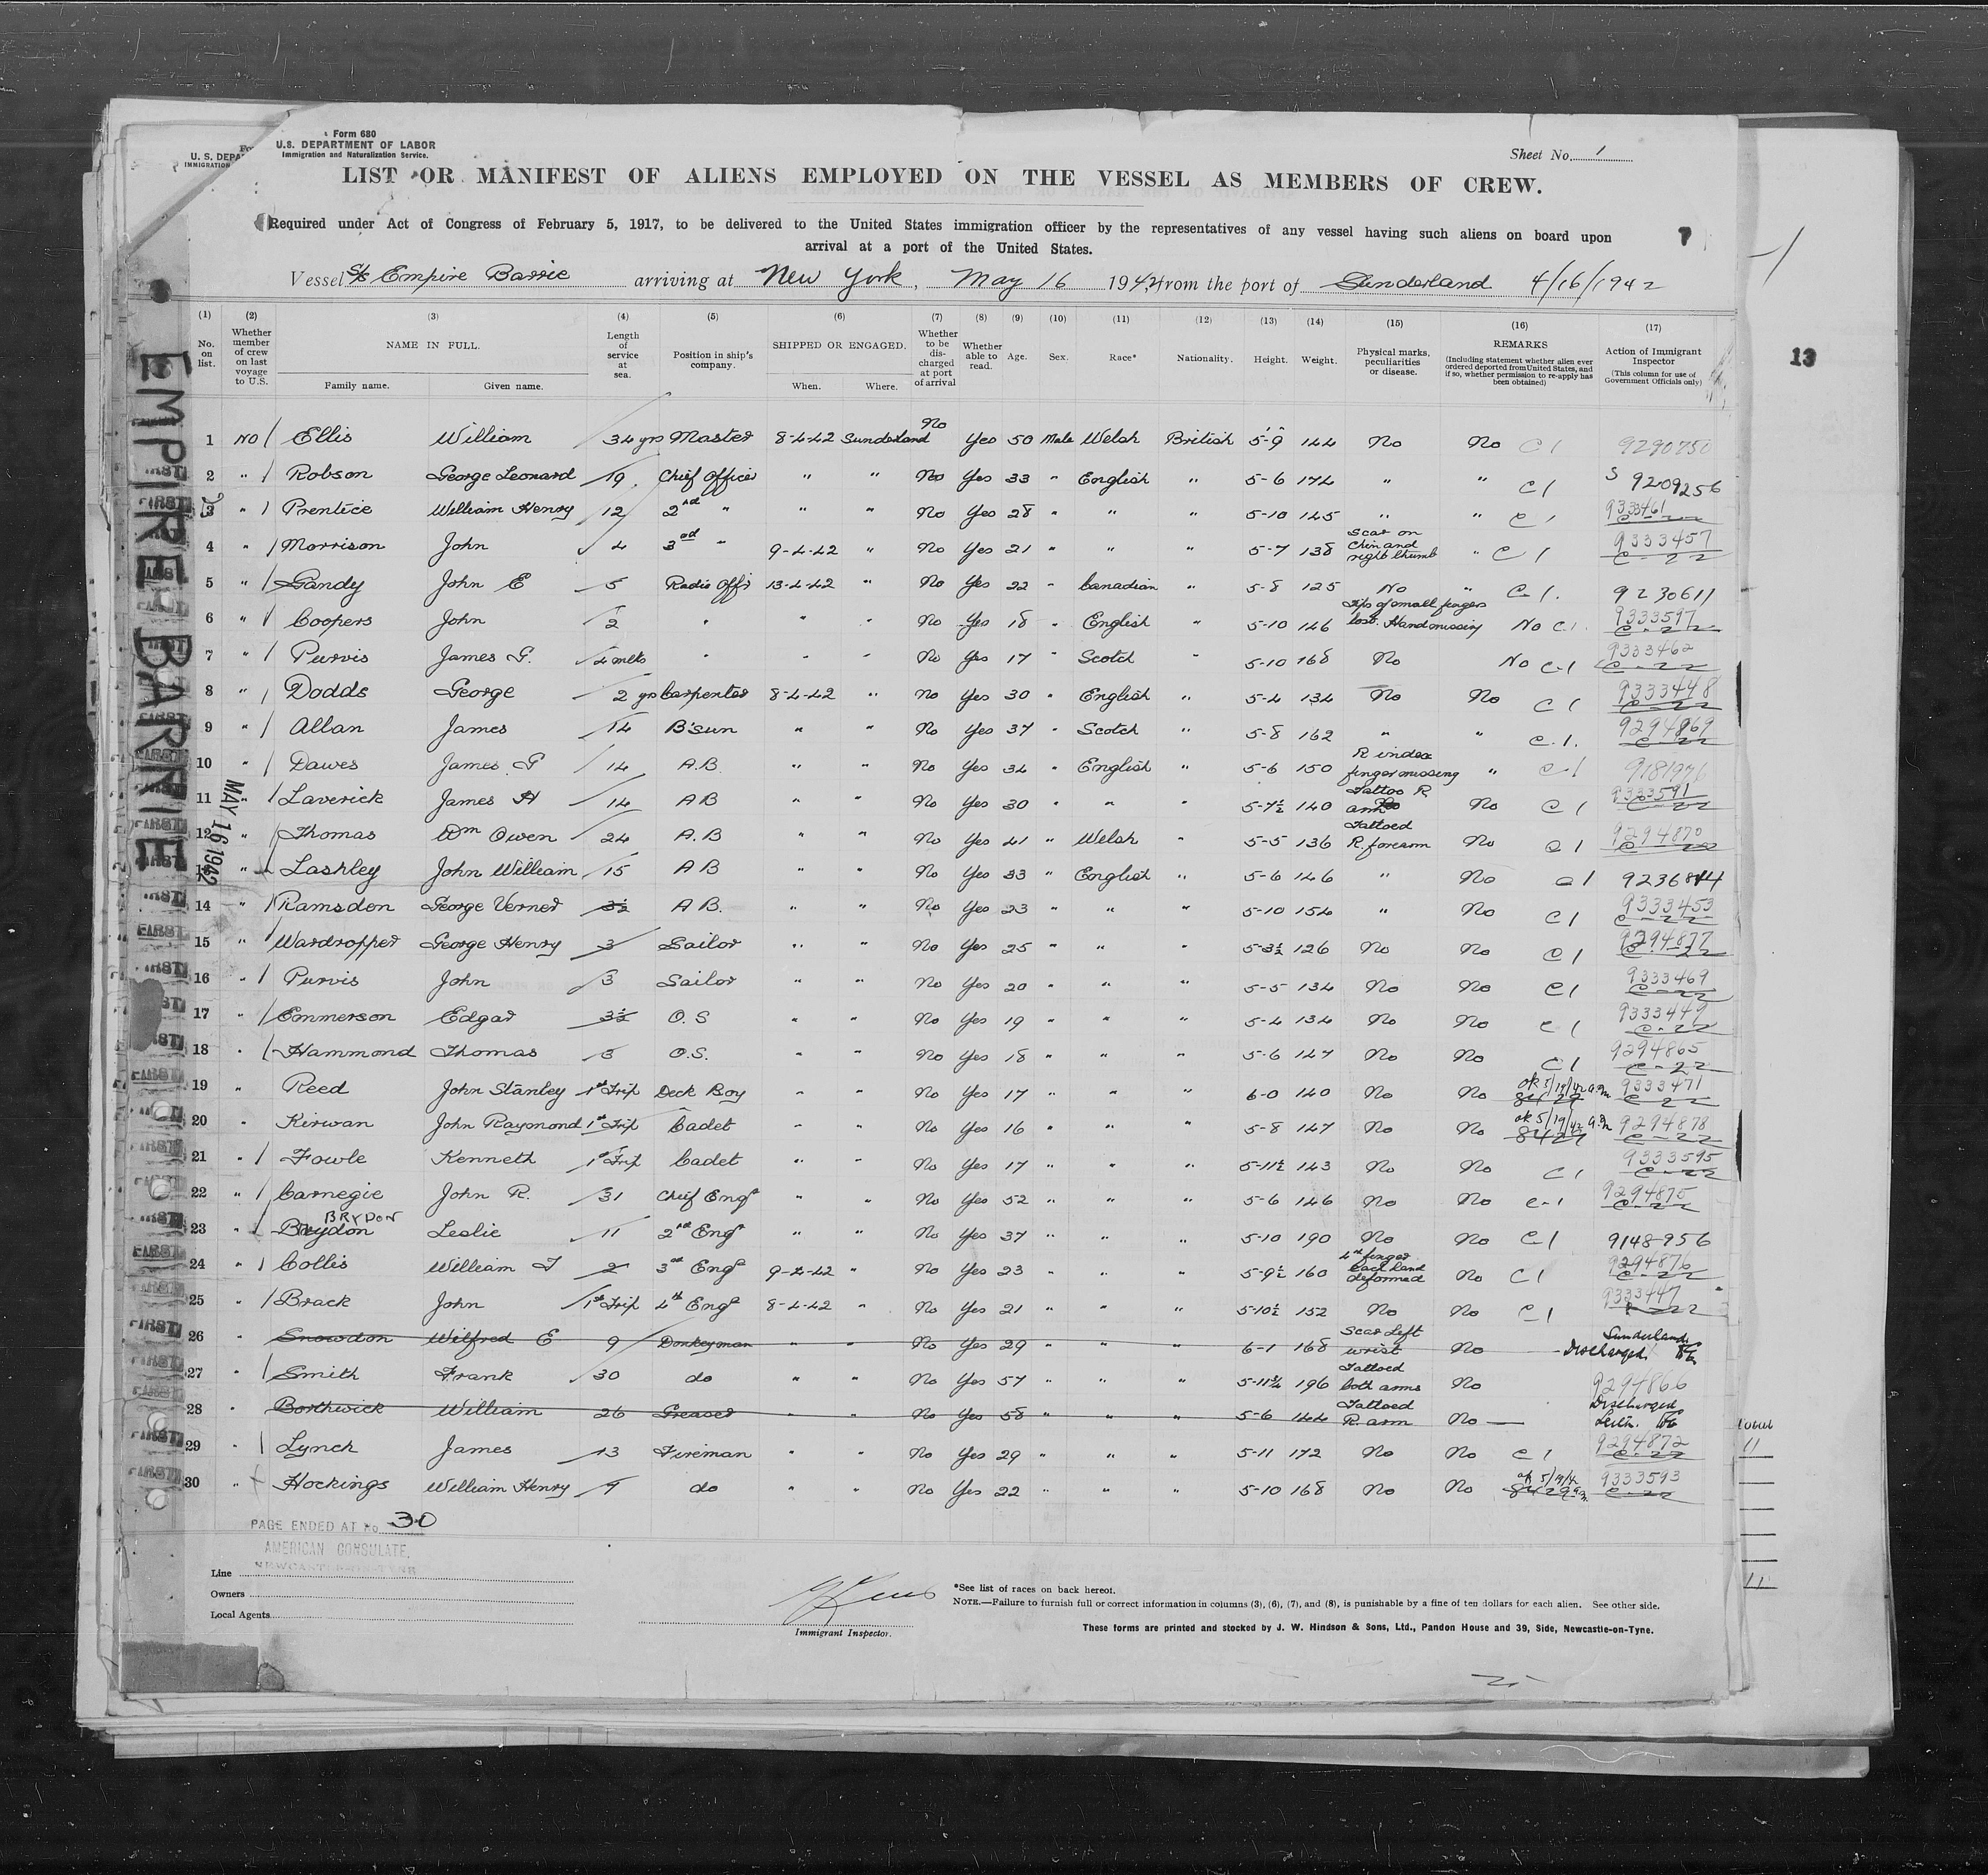 Form 680
U.S. DEPARTMENT OF LABOR
Immigration and Naturalization Service.
Sheet No. 1
LIST OR MANIFEST OF ALIENS EMPLOYED ON THE VESSEL AS MEMBERS OF CREW.
Required under Act of Congress of February 5, 1917, to be delivered to the United States immigration officer by the representatives of any vessel having such aliens on board upon
arrival at a port of the United States.
7
13
Vessel S/S Empire Barrie arriving at New York, May 16 1942, from the port of Sunderland 4/16/1942
(1) (2) (3) (4) (5) (6) (7) (8) (9) (10) (11) (12) (13) (14) (15) (16) (17)
No. on list. Whether member of crew on last voyage to U.S. NAME IN FULL. Family name. Given name. Length of service at sea. Position in ship's company. SHIPPED OR ENGAGED. When. Where. Whether to be discharged at port of arrival Whether able to read. Age. Sex. Race* Nationality. Height. Weight. Physical marks, peculiarities or disease. REMARKS (Including statement whether alien ever ordered deported from United States, and if so, whether permission to re-apply has been obtained) Action of Immigrant Inspector (This column for use of Government Officials only)
EMPIRE BARRIE
MAY 16 1942
1 NO Ellis William 34 yrs Master 8-4-42 Sunderland No Yes 50 Male Welsh British 5-9 144 No No C1 9290750
2 " Robson George Leonard 19 Chief Officer " " No Yes 33 " English " 5-6 174 " " C1 S 9209256
3 " Prentice William Henry 12 2nd " " " No Yes 28 " " " 5-10 145 " " C1 9333461 C-22
4 " Morrison John 4 3rd " 9-4-42 " No Yes 21 " " " 5-7 138 Scar on chin and right thumb " C1 9333457 C-22
5 " Gandy John E 5 Radio Offr 13-4-42 " No Yes 22 " Canadian " 5-8 125 No " C1. 9230611
6 " Coopers John 2 " " " No Yes 18 " English " 5-10 146 Tips of small fingers lost. Hand missing No C1. 9333597 C-22
7 " Purvis James G. 4 mths " " " No Yes 17 " Scotch " 5-10 168 No No C-1 9333462 C-22
8 " Dodds George 2 yrs Carpenter 8-4-42 " No Yes 30 " English " 5-4 134 No No C1 9333448 C-22
9 " Allan James 14 B'sun " " No Yes 37 " Scotch " 5-8 162 " " C.1. 9294869 C-22
10 " Dawes James G 14 A.B. " " No Yes 34 " English " 5-6 150 R index finger missing " C-1 9181976
11 " Laverick James H 14 AB " " No Yes 30 " " " 5-7½ 140 Tattoo R arm No C1 9333591 C-22
12 " Thomas Wm Owen 24 A.B " " No Yes 41 " Welsh " 5-5 136 Tattoed R. forearm No C1 9294870 C-22
13 " Lashley John William 15 AB " " No Yes 33 " English " 5-6 146 " No C1 9236844
14 " Ramsden George Verner 3½ AB. " " No Yes 23 " " " 5-10 154 " No C1 9333453 C-22
15 " Wardropper George Henry 3 Sailor " " No Yes 25 " " " 5-3½ 126 No No C1 9294877 C-22
16 " Purvis John 3 Sailor " " No Yes 20 " " " 5-5 134 No No C1 9333469 C-22
17 " Emmerson Edgar 3½ O.S " " No Yes 19 " " " 5-4 134 No No C1 9333449 C-22
18 " Hammond Thomas 3 O.S. " " No Yes 18 " " " 5-6 147 No No C1 9294865 C-22
19 " Reed John Stanley 1st Trip Deck Boy " " No Yes 17 " " " 6-0 140 No No ok 5/19/42 8429 9333471 C-22
20 " Kirwan John Raymond 1st Trip Cadet " " No Yes 16 " " " 5-8 147 No No ok 5/19/42 8429 9294878 C-22
21 " Fowle Kenneth 1st Trip Cadet " " No Yes 17 " " " 5-11½ 143 No No C1 9333595 C-22
22 " Carnegie John R. 31 Chief Engr " " No Yes 52 " " " 5-6 146 No No C-1 9294875 C-22
BRYDON
23 " Brydon Leslie 11 2nd Engr " " No Yes 37 " " " 5-10 190 No No C1 9148-956
24 " Collis William T 2 3rd Engr 9-4-42 " No Yes 23 " " " 5-9½ 160 4th finger each hand deformed No C1 9294876 C-22
25 " Brack John 1st Trip 4th Engr 8-4-42 " No Yes 21 " " " 5-10½ 152 No No C1 9333447 C-22
26 " Snowdon Wilfred E 9 Donkeyman " " No Yes 29 " " " 6-1 168 Scar Left wrist No Discharged Sunderland
27 " Smith Frank 30 do " " No Yes 57 " " " 5-11¾ 196 Tattoed both arms No 9294866
28 " Borthwick William 26 Greaser " " No Yes 58 " " " 5-6 144 Tattoed R. arm No Discharged Leith.
29 " Lynch James 13 Fireman " " No Yes 29 " " " 5-11 172 No No C1 9294872 C-22
30 " Hockings William Henry 9 do " " No Yes 22 " " " 5-10 168 No No ok 5/19/42 8429 9333593 C-22
Total
11
11
PAGE ENDED AT No. 30
AMERICAN CONSULATE,
NEWCASTLE-ON-TYNE
Line
Owners
Local Agents
Immigrant Inspector.
*See list of races on back hereof.
NOTE.—Failure to furnish full or correct information in columns (3), (6), (7), and (8), is punishable by a fine of ten dollars for each alien. See other side.
These forms are printed and stocked by J. W. Hindson & Sons, Ltd., Pandon House and 39, Side, Newcastle-on-Tyne.